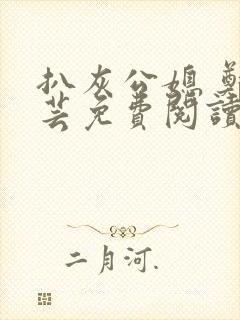 扒灰公媳 鄭
芸免費閱讀
二月河.